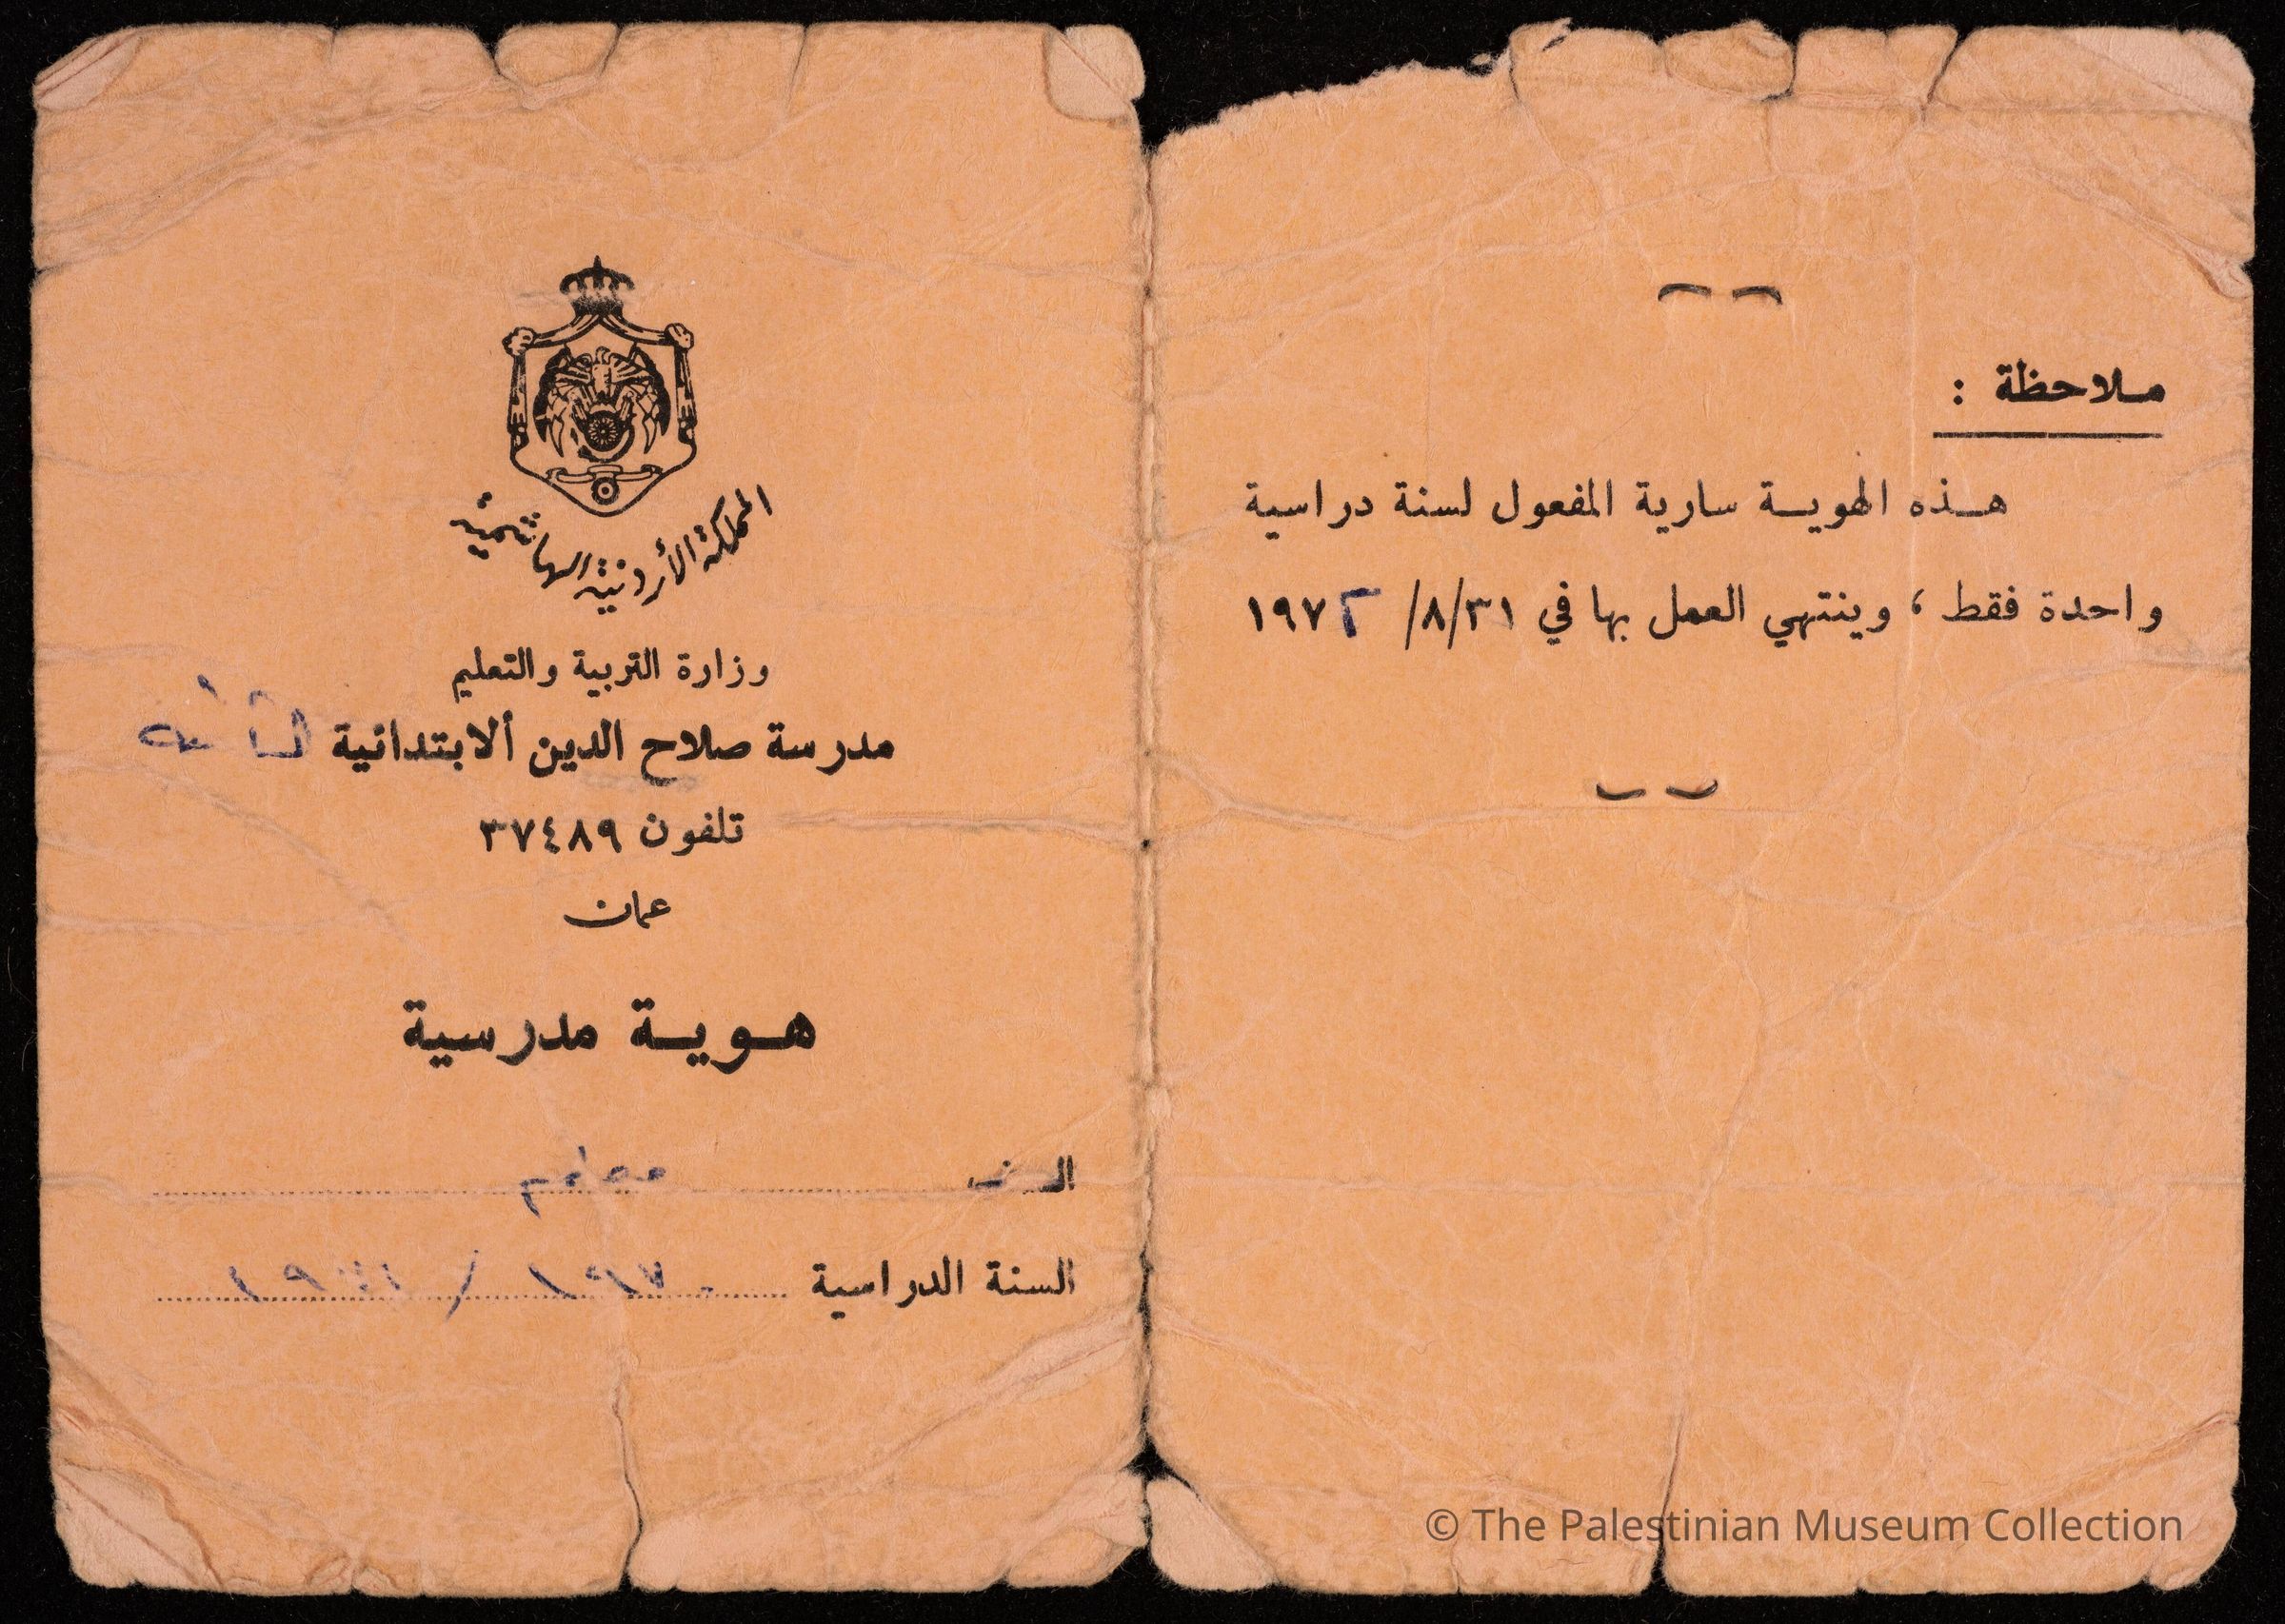 المملكة الأردنية الهاشمية
وزارة التربية والتعليم
مدرسة صلاح الدين ألابتدائية
تلفون ٣٧٤٨٩
عمان
هوية مدرسية
السنة الدراسية
ملاحظة :
هذه الهوية سارية المفعول لسنة دراسية
واحدة فقط ، وينتهي العمل بها في ٣١/٨/ ١٩٧٢
© The Palestinian Museum Collection